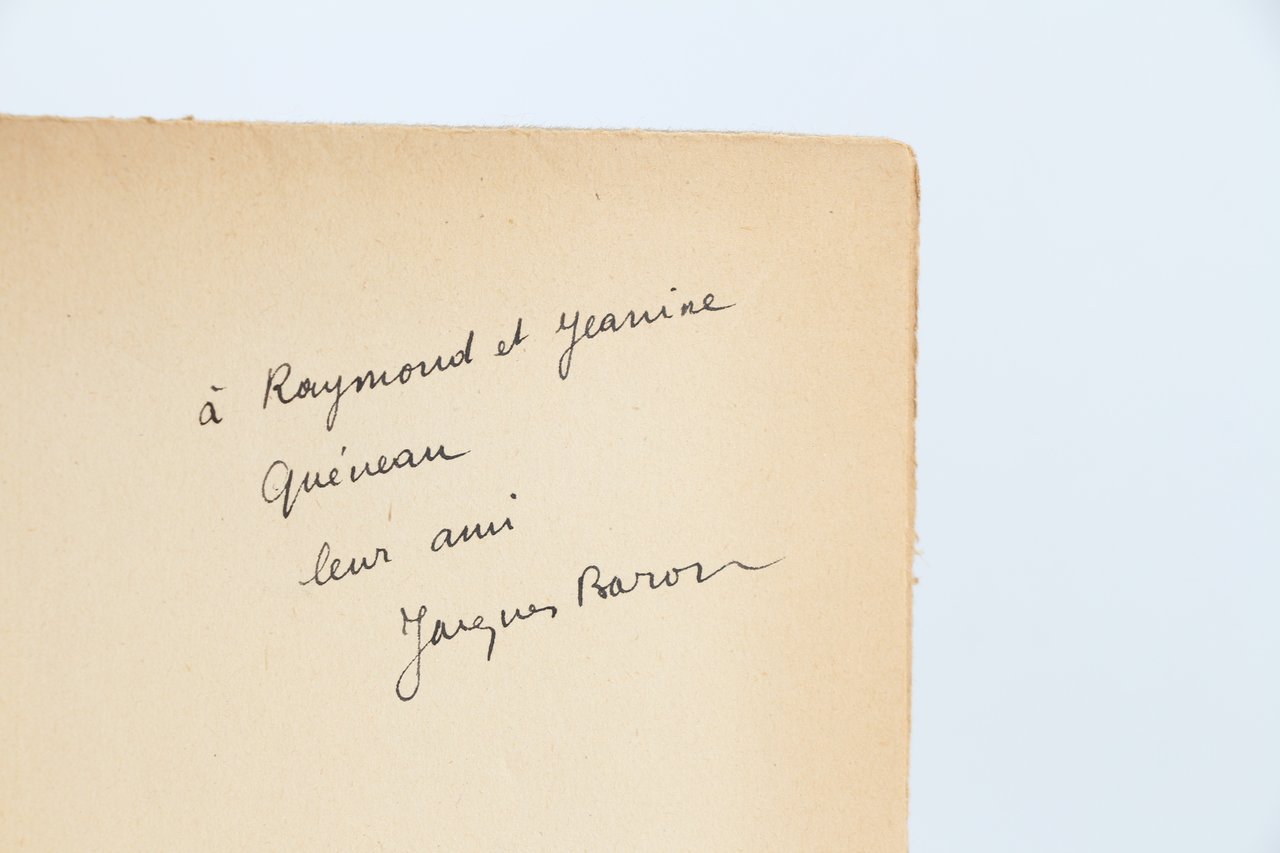 à Raymond et Jeanine
Quéneau
leur ami
Jacques Baron